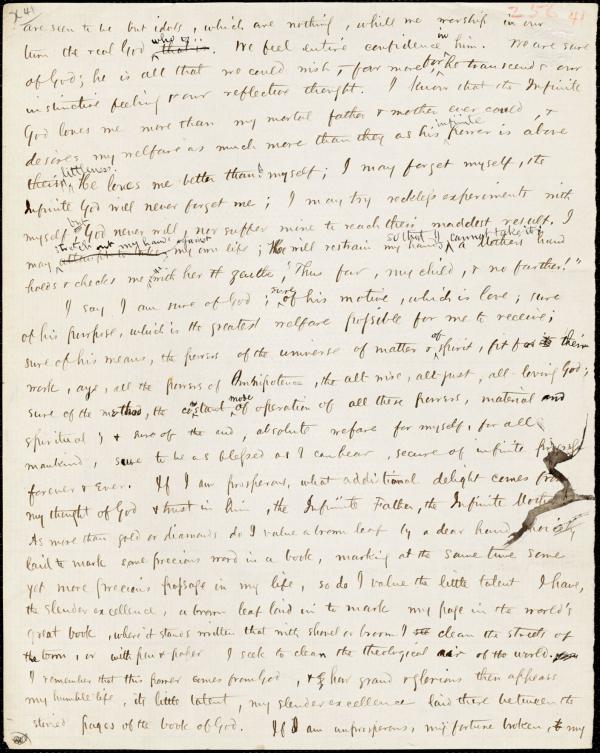 X 41
256 41
are seen to be but idols, which are nothing, whilst we worship in our
turn the real God who is. We feel entire confidence in him. We are sure
of God; he is all that we could wish, & far more, for he transcends our
instinctive feeling & our reflective thought. I know that the Infinite
God loves me more than my mortal father & mother ever could, &
desires my welfare as much more than they as his infinite power is above
their littleness. He loves me better than I myself; I may forget myself, the
Infinite God will never forget me; I may try reckless experiments with
myself, but God never will, nor suffer mine to reach their maddest result. I
may stretch out my hand against my own life; He will restrain my hand so that I cannot take it; a Mother's hand
holds & checks me, with her gentle "Thus far, my child, & no farther!"
I say I am sure of God; sure of his motive, which is love; sure
of his purpose, which is the greatest welfare possible for me to receive;
sure of his means, the powers of the universe of matter & of spirit, fit for their
work, aye, all the powers of Omnipotence, the all-wise, all-just, all-loving God;
sure of the method, the constant mode of operation of all these powers, material and
spiritual; & sure of the end, absolute welfare for myself, for all
mankind, sure to be as blessed as I can bear, secure of infinite progress
forever & ever. If I am prosperous, what additional delight comes from
my thought of God & trust in him, the Infinite Father, the Infinite Mother!
As more than gold or diamonds do I value a brown leaf by a dear hand
laid to mark some precious word in a book, marking at the same time some
yet more precious passage in my life, so do I value the little talent I have,
the slender excellence, a brown leaf laid in to mark my page in the world's
great book, where it stands written that with shovel or broom I clean the streets of
the town, or with pen & paper I seek to clean the theological air of the world.
I remember that this power comes from God, & how grand & glorious then appears
my humble life, its little talent, my slender excellence laid there between the
storied pages of the book of God. If I am unprosperous, my fortune broken, my